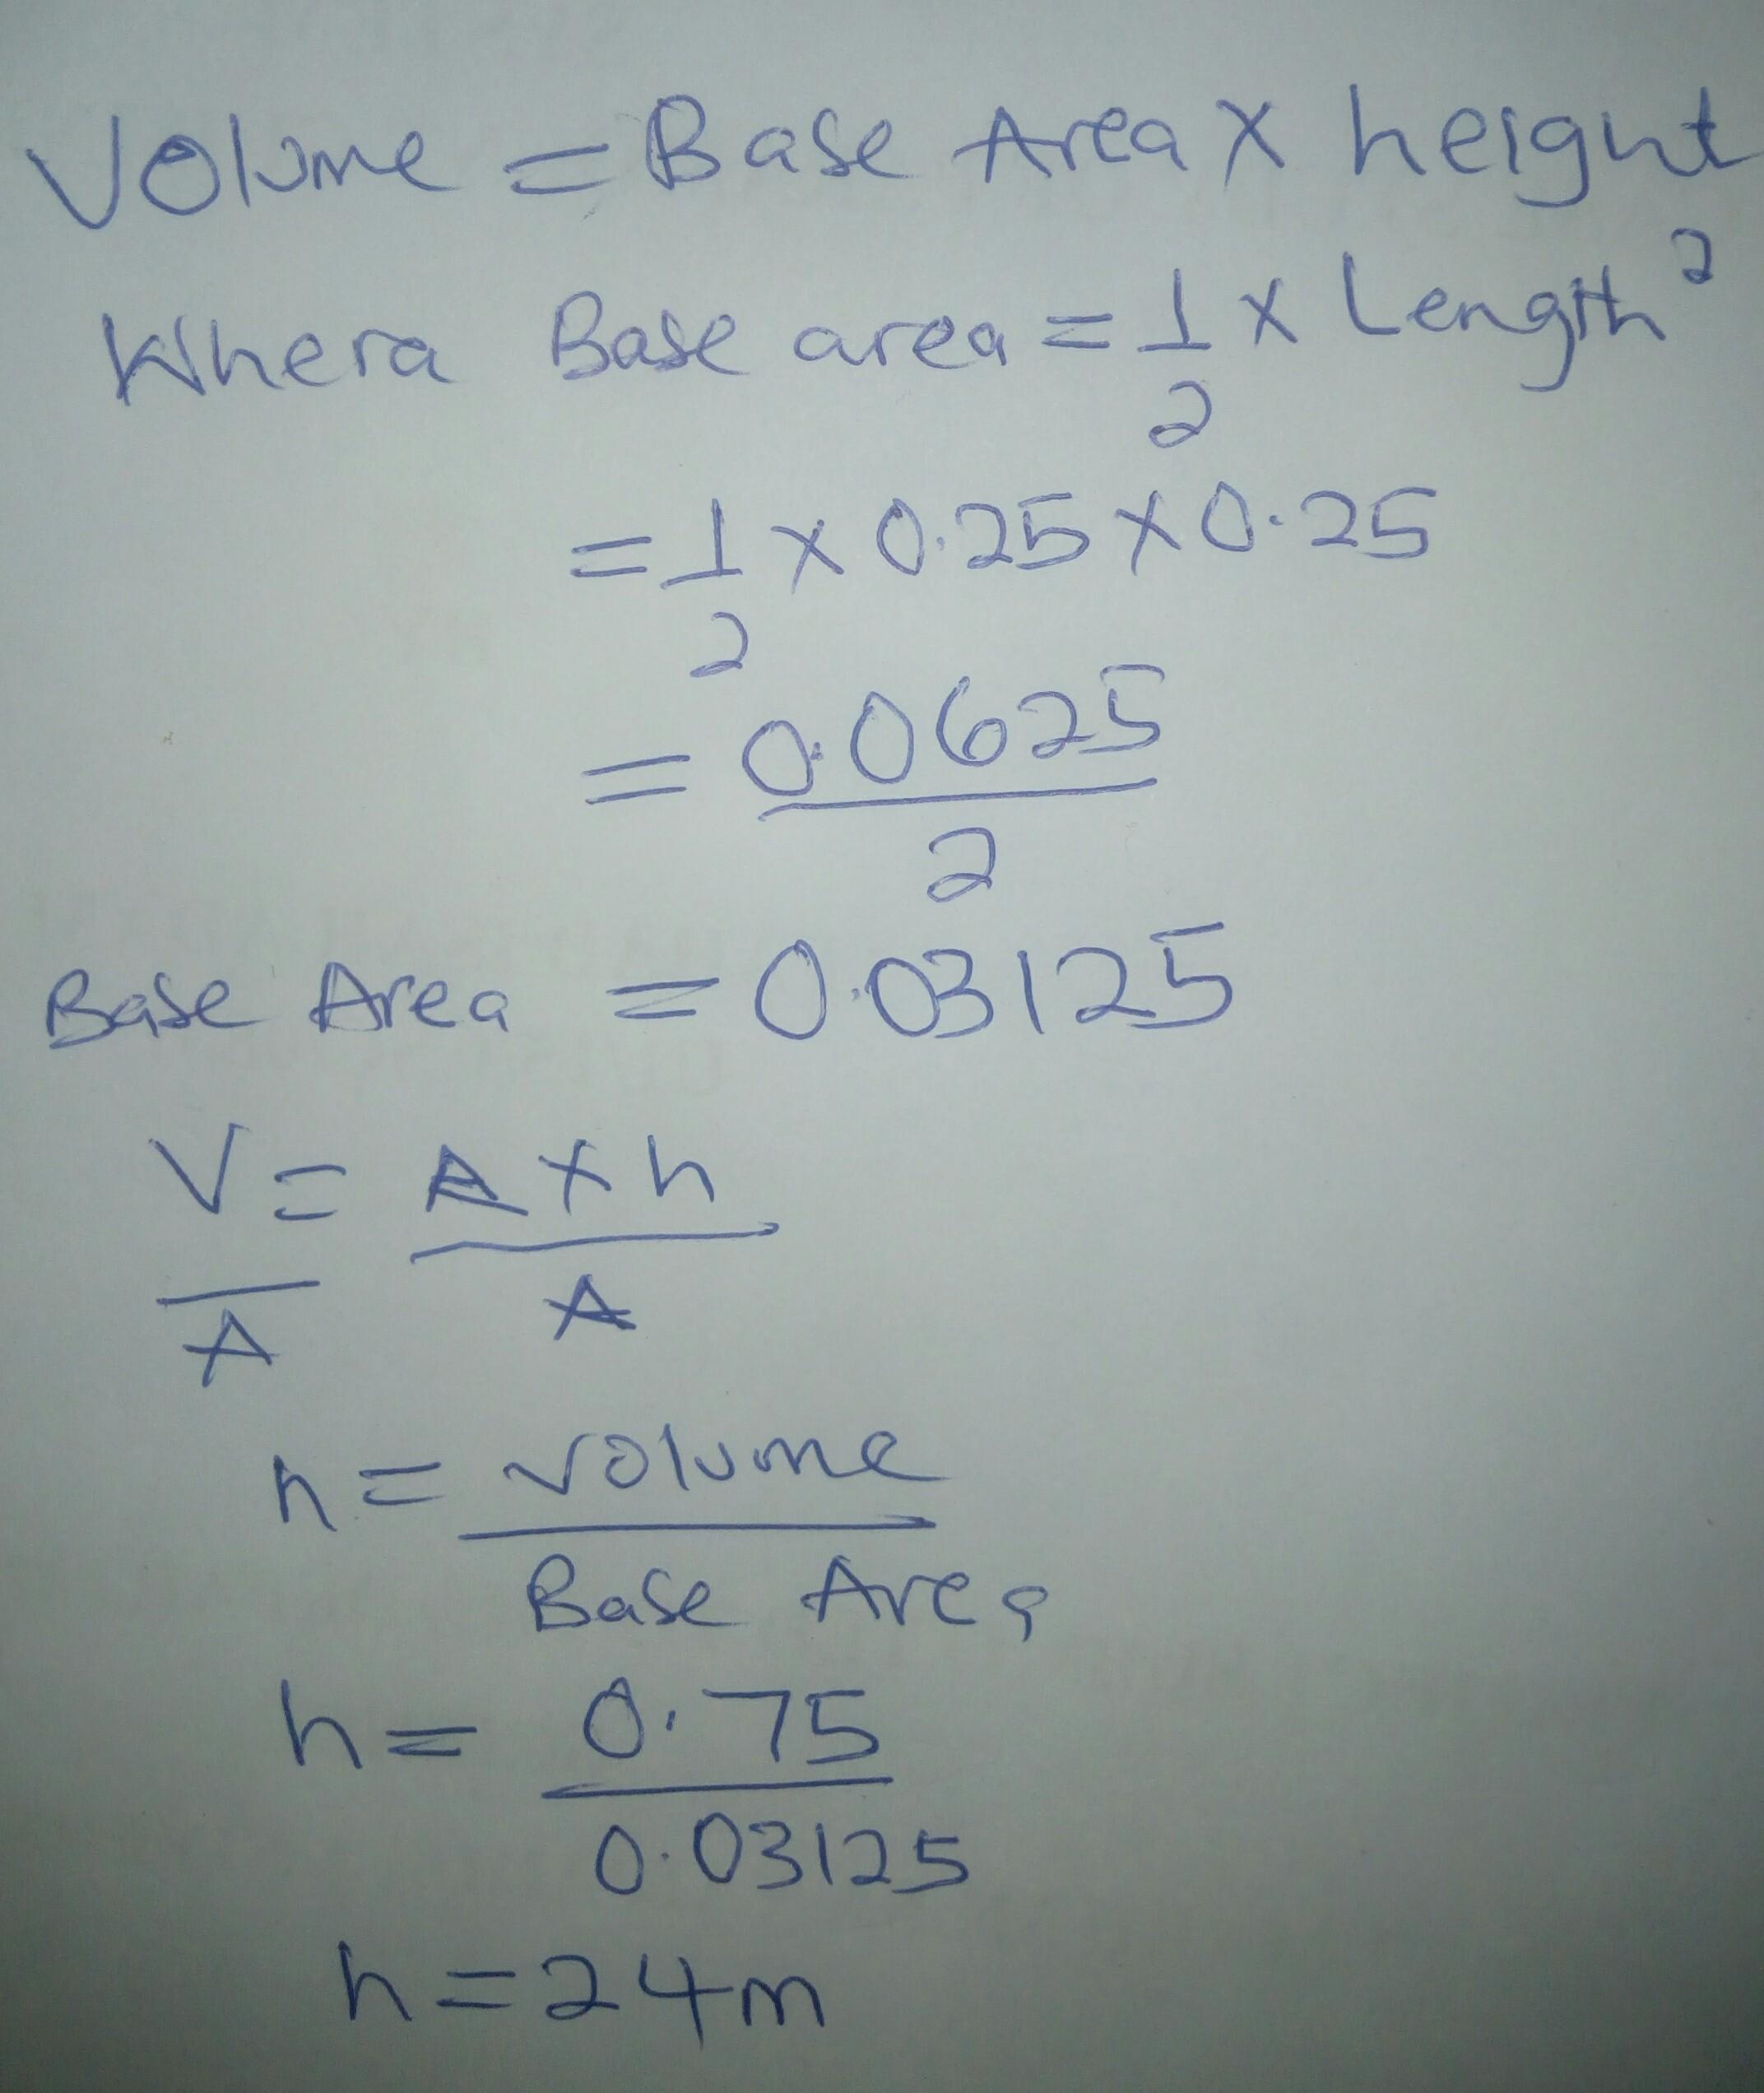 Volume = Base Area X height
Where Base area = 1/2 x Length²
= 1/2 x 0.25 x 0.25
= 0.0625/2
Base Area = 0.03125
V/A = A x h/A
h = volume/Base Area
h = 0.75/0.03125
h = 24m